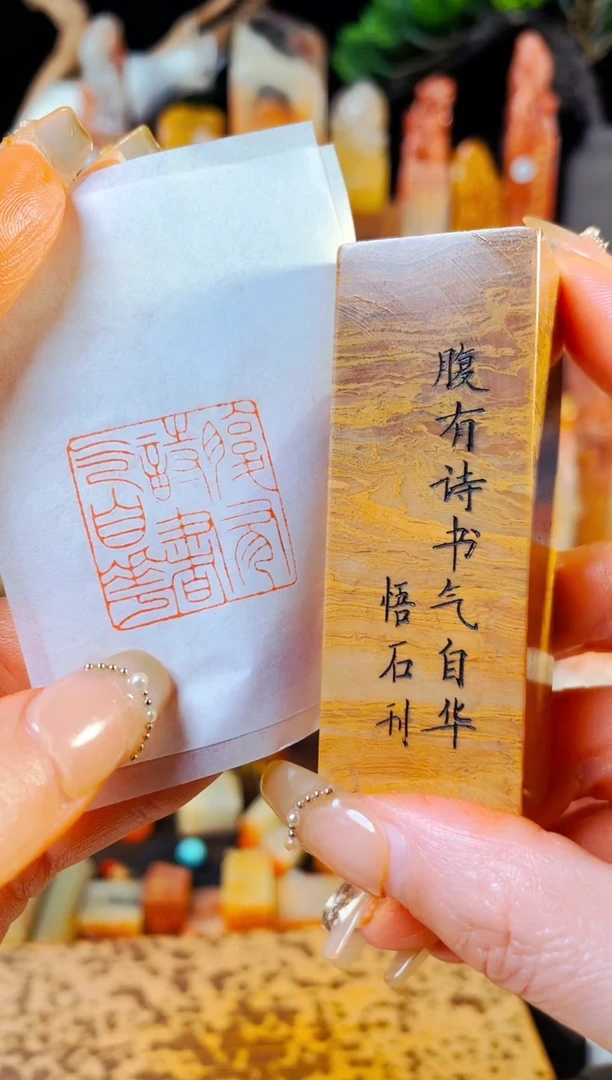 腹有诗书气自华
悟石刊
腹有
詩書
气自華